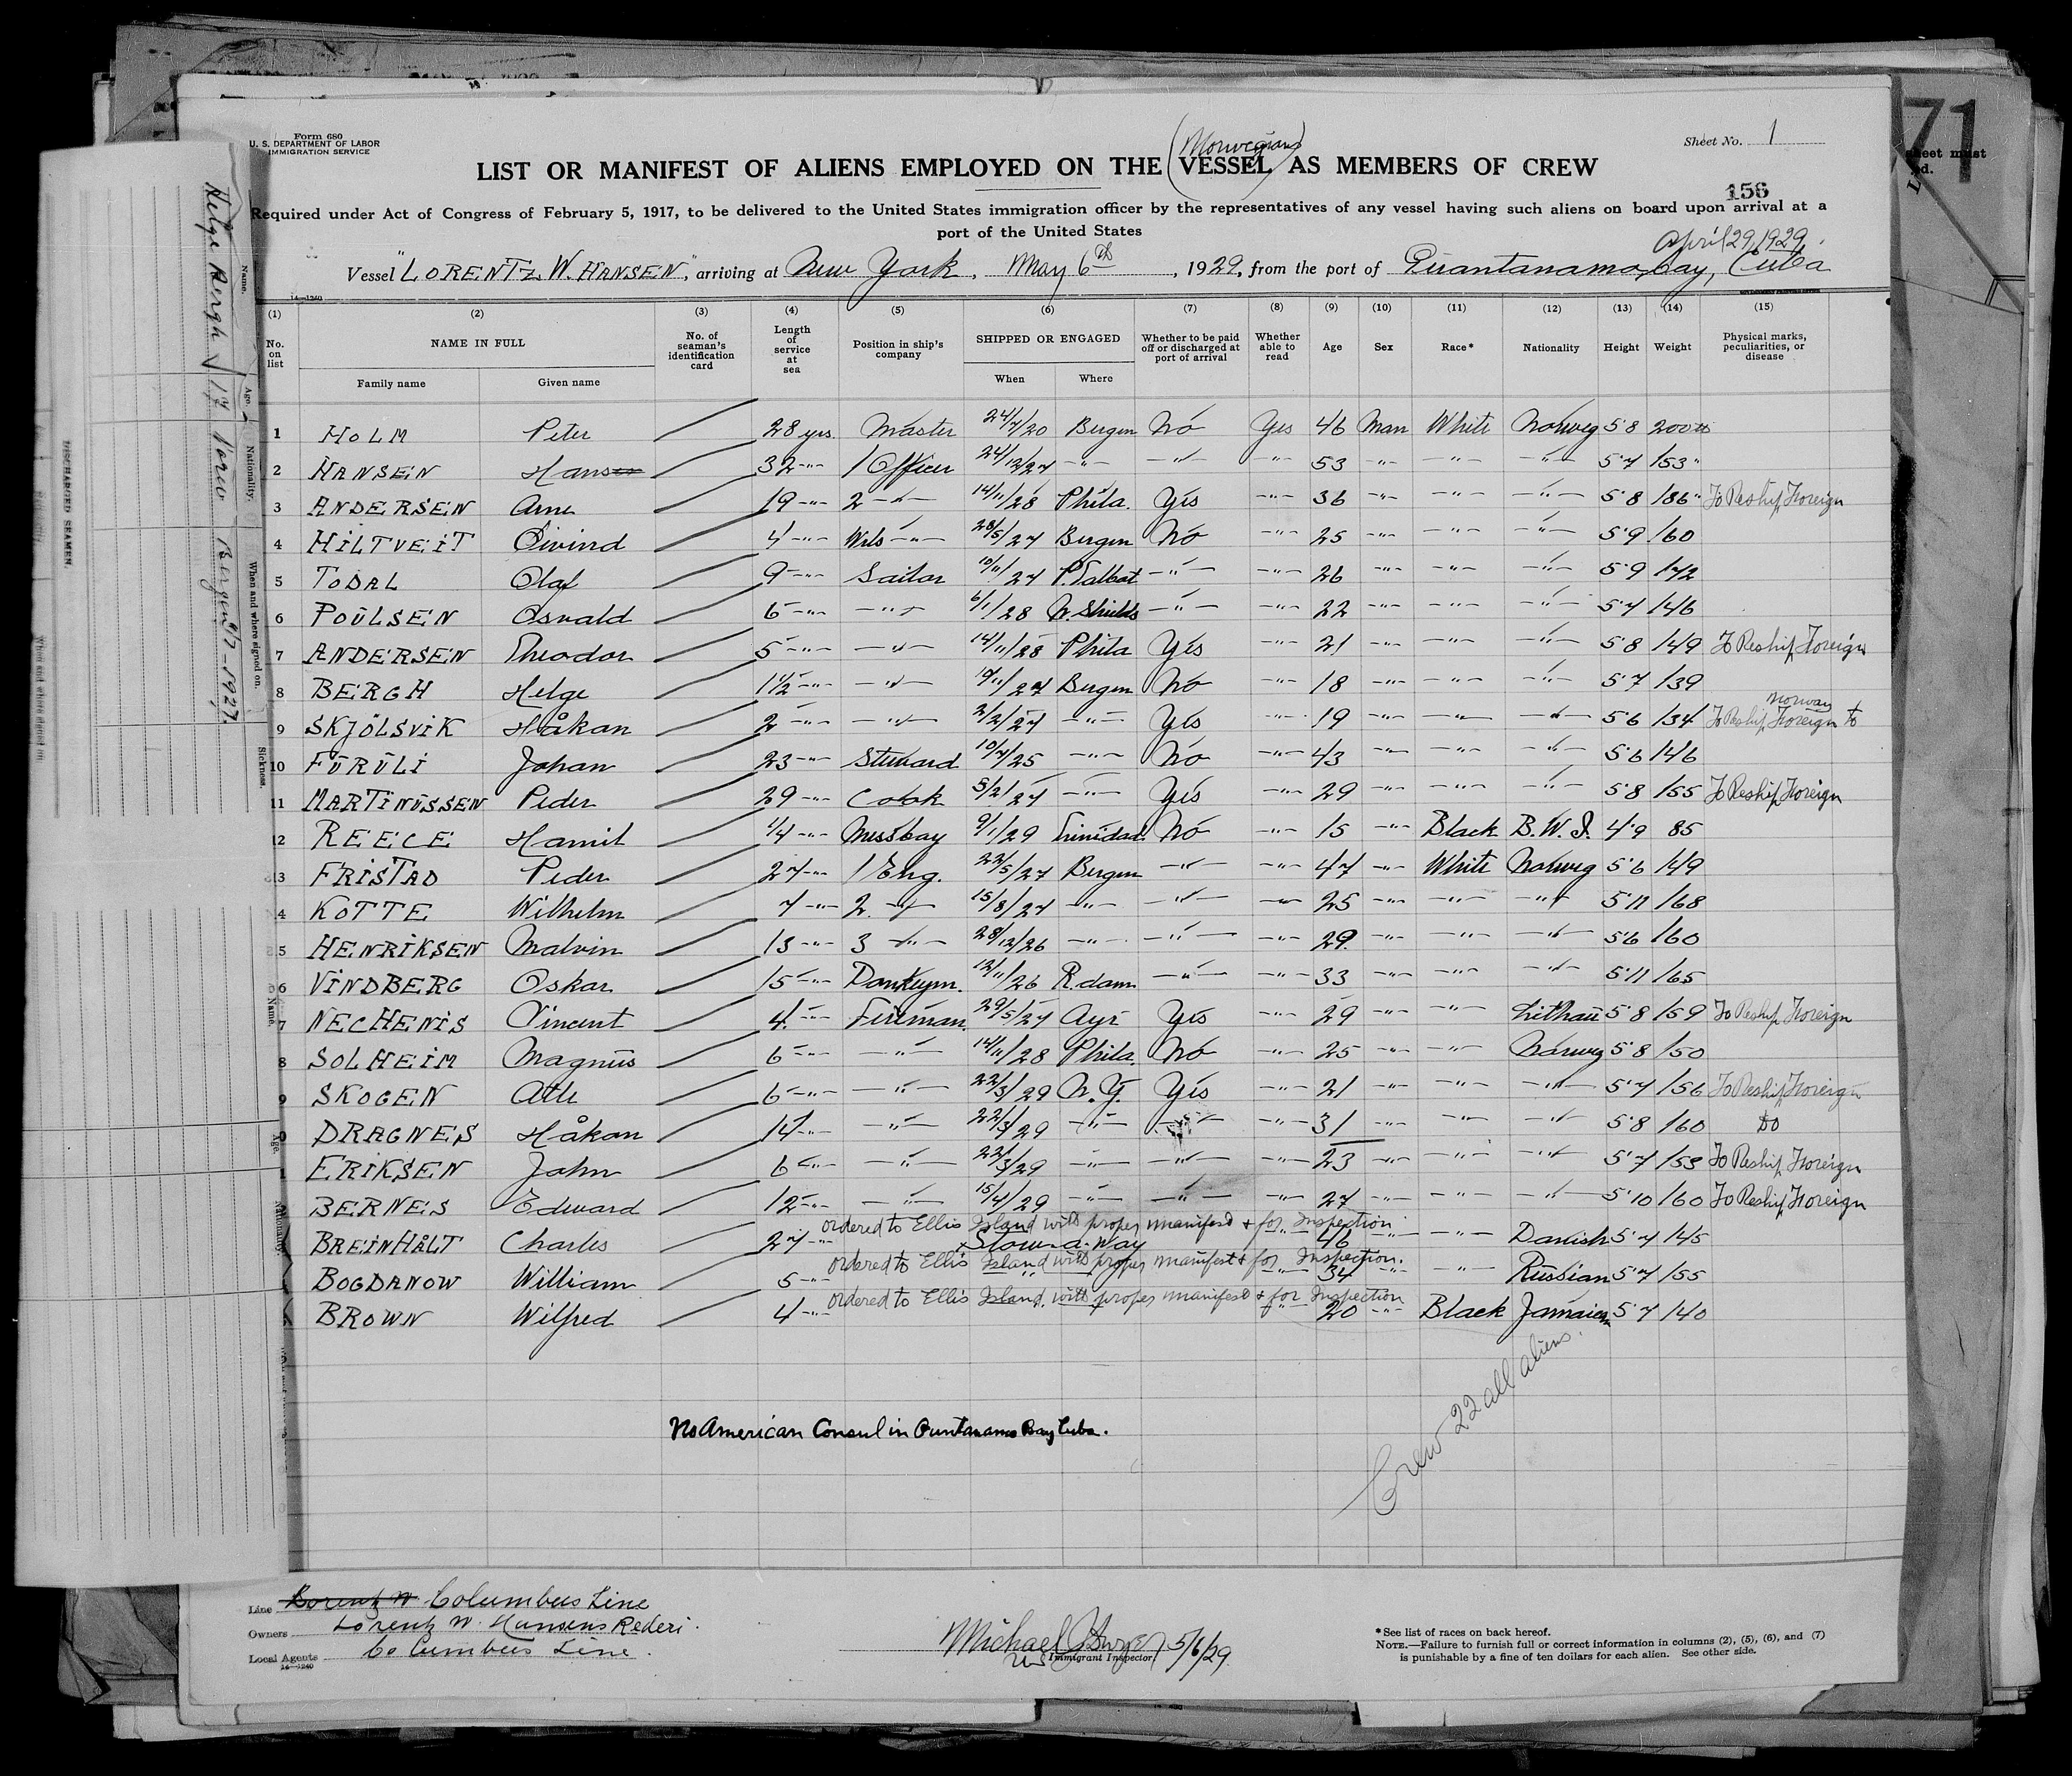 Form 680
U. S. DEPARTMENT OF LABOR
IMMIGRATION SERVICE
Sheet No. 1
(Norwegian)
LIST OR MANIFEST OF ALIENS EMPLOYED ON THE VESSEL AS MEMBERS OF CREW
156
Required under Act of Congress of February 5, 1917, to be delivered to the United States immigration officer by the representatives of any vessel having such aliens on board upon arrival at a
port of the United States
April 29, 1929.
Vessel "LORENTZ W. HANSEN", arriving at New York, May 6th, 1929, from the port of Guantanamo bay, Cuba
14—1240
(1) (2) (3) (4) (5) (6) (7) (8) (9) (10) (11) (12) (13) (14) (15)
No. on list NAME IN FULL No. of seaman's identification card Length of service at sea Position in ship's company SHIPPED OR ENGAGED Whether to be paid off or discharged at port of arrival Whether able to read Age Sex Race* Nationality Height Weight Physical marks, peculiarities, or disease
Family name Given name When Where
1 HOLM Peter 28 yrs. Master 24/7/20 Bergen No Yes 46 Man White Norweg 5'8 200 lbs
2 HANSEN Hans 32 -"- 1 Officer 24/12/27 -"- -"- -"- 53 -"- -"- -"- 5'7 153"
3 ANDERSEN Arne 19 -"- 2 -"- 14/11/28 Phila. Yes -"- 36 -"- -"- -"- 5'8 186" To Reship Foreign
4 HILTVEIT Öivind 4 -"- Wils -"- 28/5/27 Bergen No -"- 25 -"- -"- -"- 5'9 160
5 TODAL Olaf 9 -"- Sailor 10/11/27 P.Talbot -"- -"- 26 -"- -"- -"- 5'9 142
6 POULSEN Osvald 6 -"- -"- 6/1/28 N.Shields -"- -"- 22 -"- -"- -"- 5'7 146
7 ANDERSEN Theodor 5 -"- -"- 14/11/28 Phila Yes -"- 21 -"- -"- -"- 5'8 149 To Reship Foreign
8 BERGH Helge 1 1/2 -"- -"- Bergen No -"- 18 -"- -"- -"- 5'7 139
Norway
9 SKJÖLSVIK Håkan 2 -"- -"- 2/2/27 -"- Yes -"- 19 -"- -"- -"- 5'6 134 To Reship Foreign to
10 FURULI Johan 23 -"- Steward 10/7/25 -"- No -"- 43 -"- -"- -"- 5'6 146
11 MARTINUSSEN Peder 29 -"- Cook 5/2/27 -"- Yes -"- 29 -"- -"- -"- 5'8 155 To Reship Foreign
12 REECE Hamil 1/4 -"- Messboy 9/1/29 Trinidad No -"- 15 -"- Black B.W.I. 4'9 85
13 FRISTAD Peder 27 -"- 1 Eng. 22/5/27 Bergen -"- -"- 47 -"- White Norweg 5'6 149
4 KOTTE Wilhelm 7 -"- 2. -"- 15/8/27 -"- -"- -"- 25 -"- -"- -"- 5'11 168
5 HENRIKSEN Malvin 13 -"- 3 -"- 28/12/26 -"- -"- -"- 29. -"- -"- -"- 5'6 160
6 VINDBERG Oskar 15 -"- Donkeym. 12/11/26 R.dam -"- -"- 33 -"- -"- -"- 5'11 165
7 NECHENIS Vincent 4 -"- Fireman 29/5/27 Ayr Yes -"- 29 -"- -"- Lithau 5'8 159 To Reship Foreign
8 SOLHEIM Magnus 6 -"- -"- 14/11/28 Phila No -"- 25 -"- -"- Norweg 5'8 150
9 SKOGEN Atle 6 -"- -"- 22/3/29 N.Y. Yes -"- 21 -"- -"- -"- 5'7 156 To Reship Foreign
0 DRAGNES Håkon 14 -"- -"- 22/3/29 -"- -"- -"- 31 -"- -"- -"- 5'8 160 Do
1 ERIKSEN John 6 -"- -"- 22/3/29 -"- -"- -"- 23 -"- -"- -"- 5'7 153 To Reship Foreign
BERNES Edward 12 -"- -"- 15/4/29 -"- -"- -"- 27 -"- -"- -"- 5'10 160 To Reship Foreign
ordered to Ellis Island with proper manifest & for Inspection
BREINHÅLT Charles 27 -"- Stow-a-way 46 -"- -"- Danish 5'7 145
ordered to Ellis Island with proper manifest & for Inspection.
BOGDANOW William 5 -"- " " 34 -"- -"- Russian 5'7 155
ordered to Ellis Island with proper manifest & for Inspection
BROWN Wilfred 4 -"- " 20 -"- Black Jamaican 5'7 140
Crew 22 all aliens.
No American Consul in Guntanamo Bay Cuba.
Line Lorentz W Columbus Line
Owners Lorentz W. Hansens Rederi.
Local Agents Columbus Line.
14—1240
Michael 5/6/29
Immigrant Inspector
*See list of races on back hereof.
NOTE.—Failure to furnish full or correct information in columns (2), (5), (6), and (7)
is punishable by a fine of ten dollars for each alien. See other side.
Name. Age. Nationality. When and where signed on. Sickness.
Helge Bergh 17 Norw Bergen 1927.
DISCHARGED SEAMEN.
Name.
Age.
Nationality.
71
sheet must